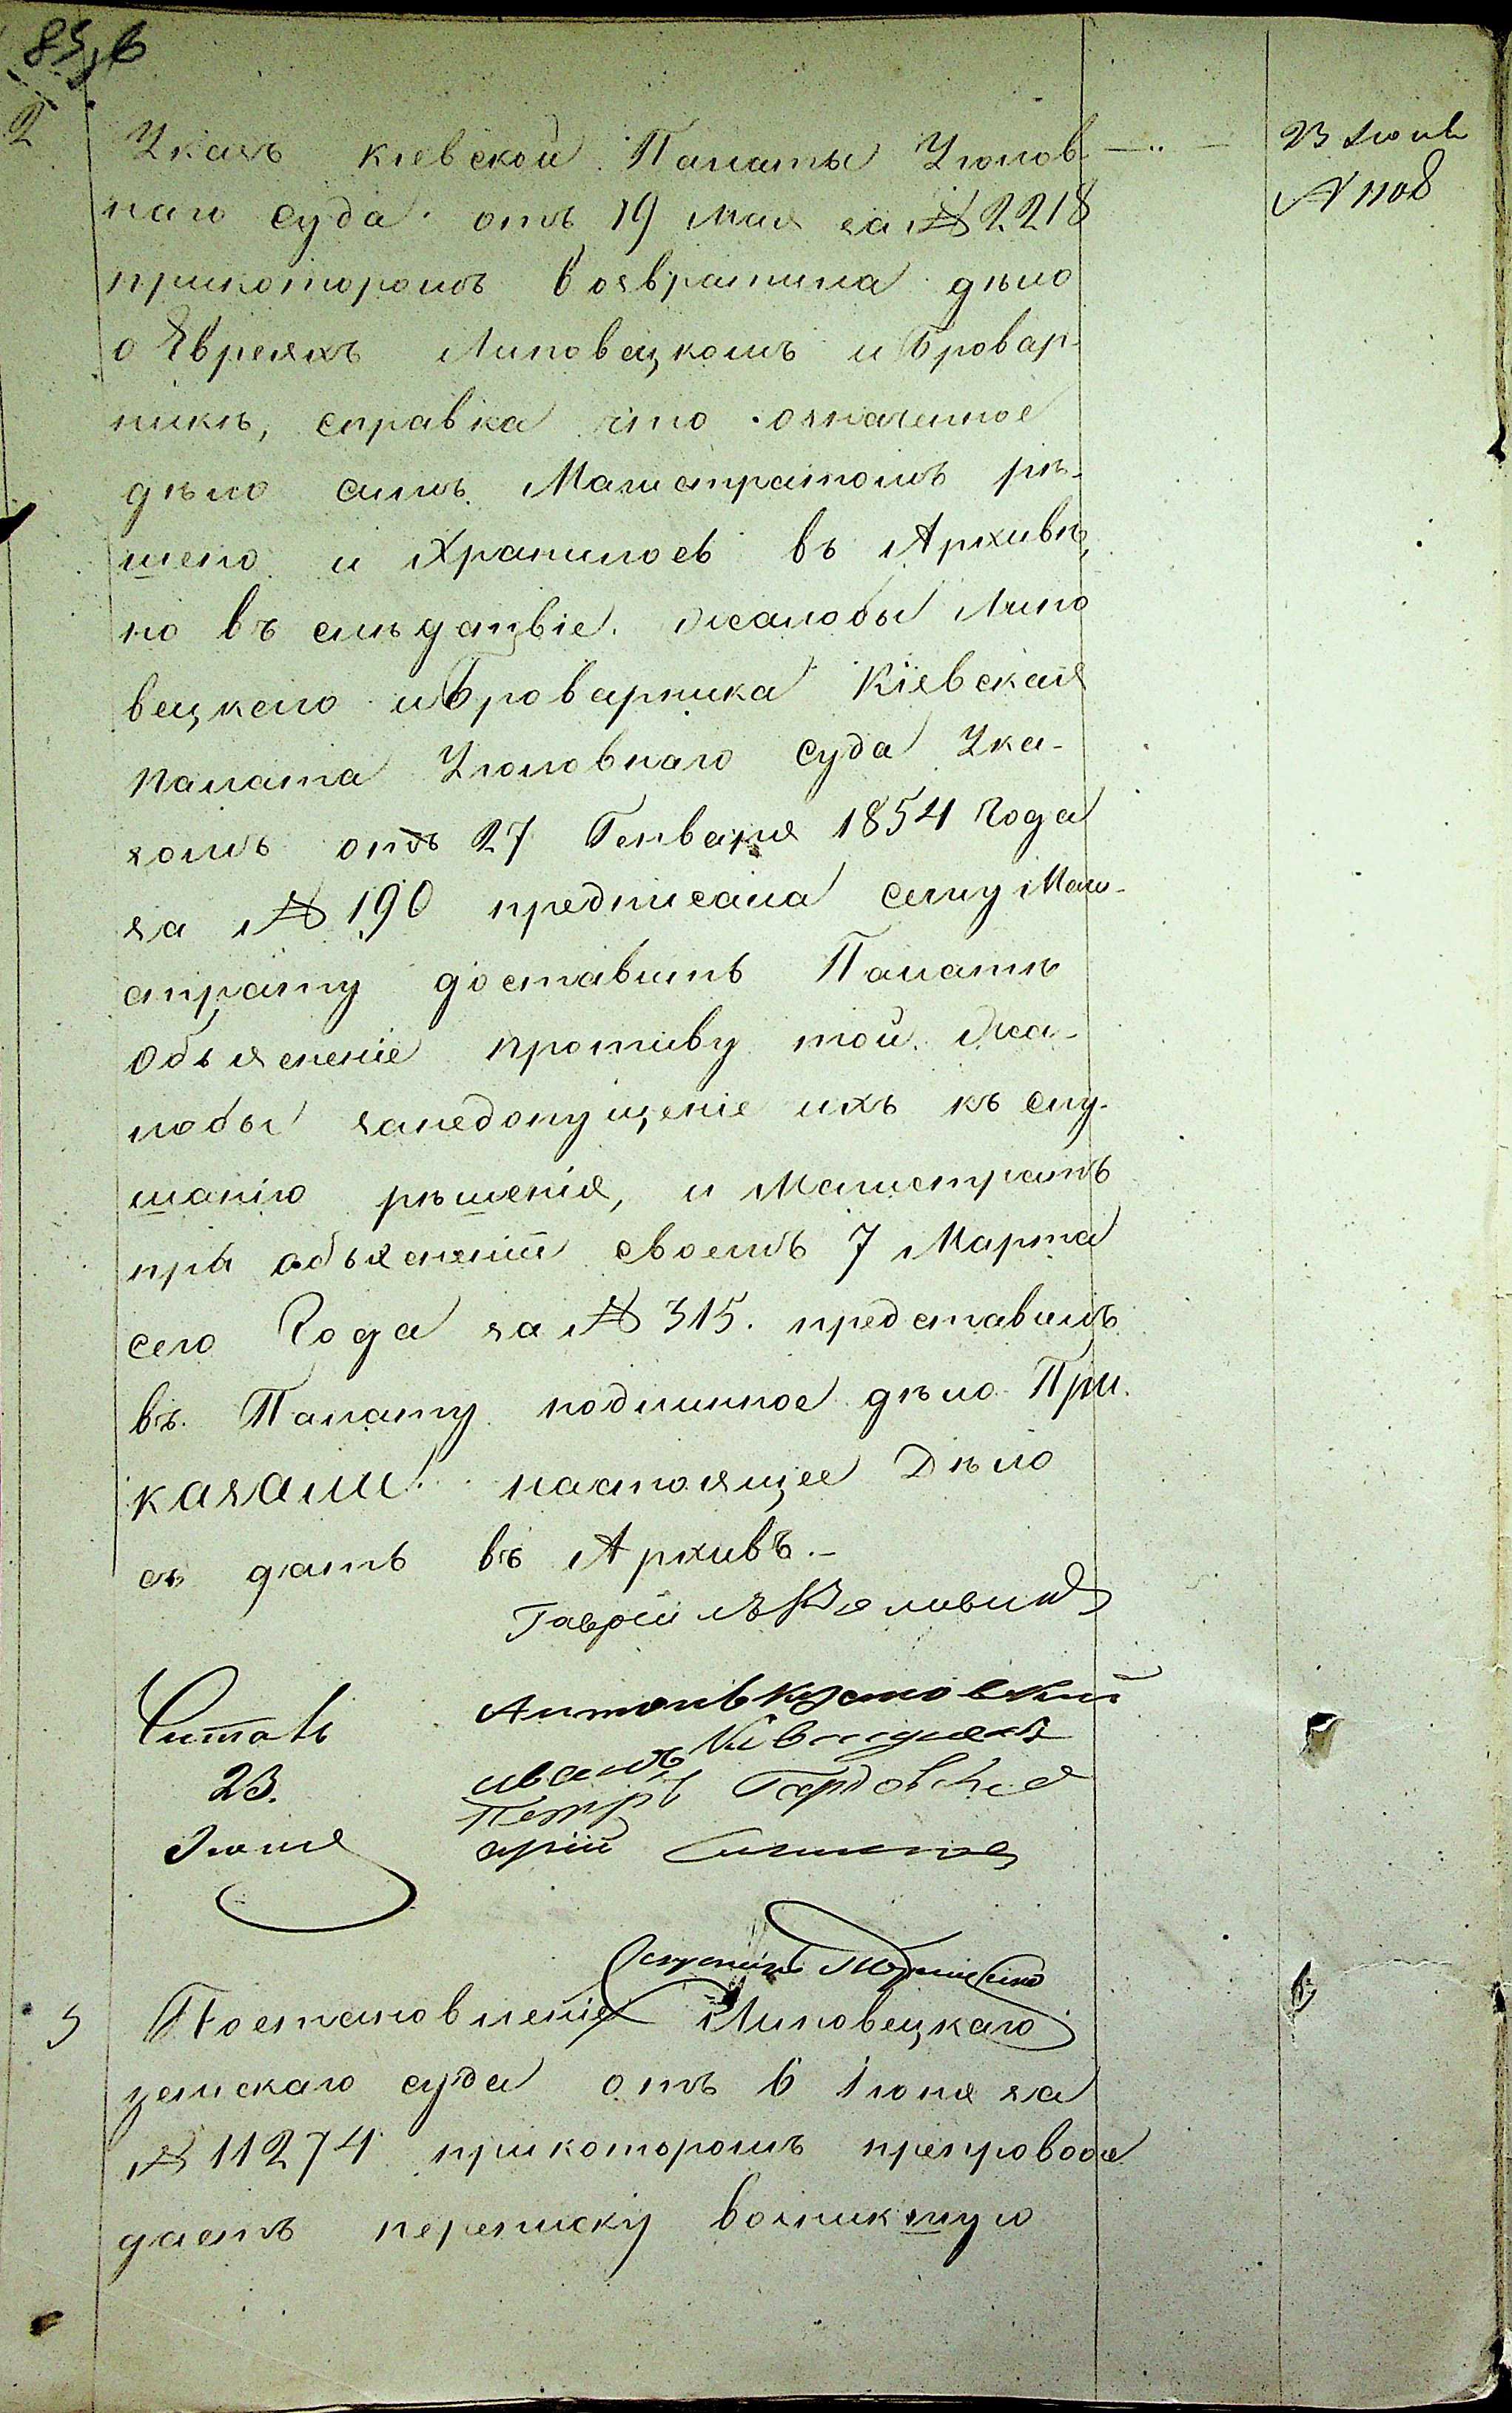 2
Указъ Кіевской Палаты Уголов
наго Суда отъ 19 Мая за № 2218
прикоторомъ возвратила дѣло
о Евреяхъ Липовецкомъ и Бровар-
никѣ, справка что означенное
дѣло симъ Магистратомъ рѣ-
шено и хранилось въ Архивѣ,
но въ слѣдствіе жалобы Липо
вецкаго и Броварника Кіевская
Палата Уголовнаго Суда Ука-
зомъ отъ 27 Генваря 1854 Года
за № 190 предписала сему Маги-
страту доставить Палатѣ
объясненіе противу той жа-
лобы занедопущеніе ихъ къ слу-
шанію рѣшенія, и Магистратъ
при объясненіи своемъ 7 Марта
сего Года за № 315. представилъ
въ Палату подлинное дѣло При
казали настоящее Дѣло
сдать въ Архивъ.-
23 Іюня
№ 1108
Гавріилъ
Антонъ
Иванъ
Петръ
Читалъ
23.
Іюня
3 Постановленіе Липовецкаго
земскаго суда отъ 6 Іюня за
№ 11274 прикоторомъ препровож
даетъ переписку возникшую